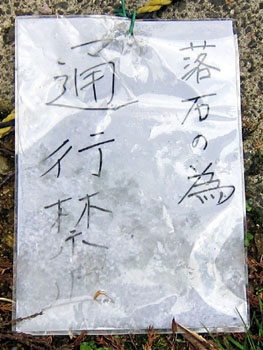 落石の為
通行禁止